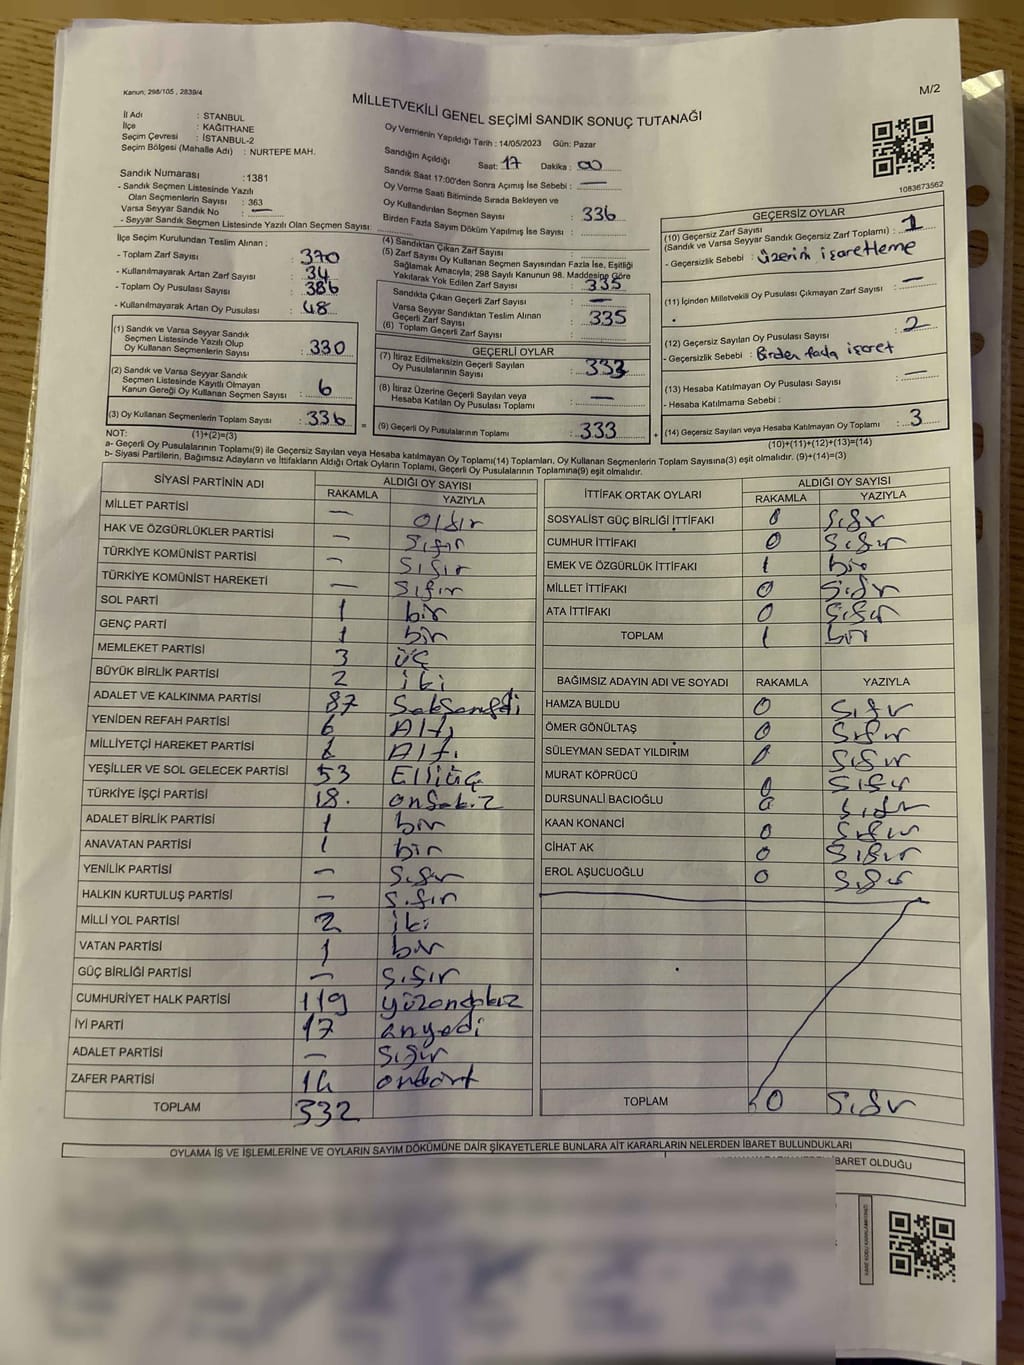 Kanun; 298/105 , 2839/4
M/2
MİLLETVEKİLİ GENEL SEÇİMİ SANDIK SONUÇ TUTANAĞI
İl Adı : STANBUL
İlçe : KAĞITHANE
Seçim Çevresi : İSTANBUL-2
Seçim Bölgesi (Mahalle Adı) : NURTEPE MAH.
Sandık Numarası : 1381
- Sandık Seçmen Listesinde Yazılı
Olan Seçmenlerin Sayısı : 363
Varsa Seyyar Sandık No : —
- Seyyar Sandık Seçmen Listesinde Yazılı Olan Seçmen Sayısı:
Oy Vermenin Yapıldığı Tarih : 14/05/2023 Gün: Pazar
Sandığın Açıldığı Saat: 17 Dakika : 00
Sandık Saat 17:00'den Sonra Açımış İse Sebebi : —
Oy Verme Saati Bitiminde Sırada Bekleyen ve
Oy Kullandırılan Seçmen Sayısı : 336
Birden Fazla Sayım Döküm Yapılmış İse Sayısı :
1083673562
İlçe Seçim Kurulundan Teslim Alınan ;
- Toplam Zarf Sayısı : 370
- Kullanılmayarak Artan Zarf Sayısı : 34
- Toplam Oy Pusulası Sayısı : 386
- Kullanılmayarak Artan Oy Pusulası : 48
(1) Sandık ve Varsa Seyyar Sandık
Seçmen Listesinde Yazılı Olup
Oy Kullanan Seçmenlerin Sayısı : 330
(2) Sandık ve Varsa Seyyar Sandık
Seçmen Listesinde Kayıtlı Olmayan
Kanun Gereği Oy Kullanan Seçmen Sayısı : 6
(3) Oy Kullanan Seçmenlerin Toplam Sayısı : 336
(4) Sandıktan Çıkan Zarf Sayısı :
(5) Zarf Sayısı Oy Kullanan Seçmen Sayısından Fazla İse, Eşitliği
Sağlamak Amacıyla; 298 Sayılı Kanunun 98. Maddesine Göre
Yakılarak Yok Edilen Zarf Sayısı : 335
Sandıkta Çıkan Geçerli Zarf Sayısı : —
Varsa Seyyar Sandıktan Teslim Alınan
Geçerli Zarf Sayısı : 335
(6) Toplam Geçerli Zarf Sayısı :
GEÇERLİ OYLAR
(7) İtiraz Edilmeksizin Geçerli Sayılan
Oy Pusulalarının Sayısı : 333
(8) İtiraz Üzerine Geçerli Sayılan veya
Hesaba Katılan Oy Pusulası Toplamı : —
= (9) Geçerli Oy Pusulalarının Toplamı : 333 +
GEÇERSİZ OYLAR
(10) Geçersiz Zarf Sayısı
(Sandık ve Varsa Seyyar Sandık Geçersiz Zarf Toplamı) : 1
- Geçersizlik Sebebi : üzerini işaretleme
(11) İçinden Milletvekili Oy Pusulası Çıkmayan Zarf Sayısı : —
(12) Geçersiz Sayılan Oy Pusulası Sayısı : 2
- Geçersizlik Sebebi : Birden fazla işaret
(13) Hesaba Katılmayan Oy Pusulası Sayısı : —
- Hesaba Katılmama Sebebi :
(14) Geçersiz Sayılan veya Hesaba Katılmayan Oy Toplamı : 3
NOT: (1)+(2)=(3)
(10)+(11)+(12)+(13)=(14)
a- Geçerli Oy Pusulaları Toplamı(9) ile Geçersiz Sayılan veya Hesaba katılmayan Oy Toplamı(14) Toplamları, Oy Kullanan Seçmenlerin Toplam Sayısına(3) eşit olmalıdır. (9)+(14)=(3)
b- Siyasi Partilerin, Bağımsız Adayların ve İttifakların Aldığı Ortak Oyların Toplamı, Geçerli Oy Pusulalarının Toplamına(9) eşit olmalıdır.
SİYASİ PARTİNİN ADI ALDIĞI OY SAYISI
RAKAMLA YAZIYLA
MİLLET PARTİSİ —
HAK VE ÖZGÜRLÜKLER PARTİSİ — Sıfır
TÜRKİYE KOMÜNİST PARTİSİ — Sıfır
TÜRKİYE KOMÜNİST HAREKETİ — Sıfır
SOL PARTİ 1 bir
GENÇ PARTİ 1 bir
MEMLEKET PARTİSİ 3 üç
BÜYÜK BİRLİK PARTİSİ 2 iki
ADALET VE KALKINMA PARTİSİ 87 Seksenyedi
YENİDEN REFAH PARTİSİ 6 Altı
MİLLİYETÇİ HAREKET PARTİSİ 6 Altı
YEŞİLLER VE SOL GELECEK PARTİSİ 53 Elliüç
TÜRKİYE İŞÇİ PARTİSİ 18. onsekiz
ADALET BİRLİK PARTİSİ 1 bir
ANAVATAN PARTİSİ 1 bir
YENİLİK PARTİSİ — Sıfır
HALKIN KURTULUŞ PARTİSİ — Sıfır
MİLLİ YOL PARTİSİ 2 iki
VATAN PARTİSİ 1 bir
GÜÇ BİRLİĞİ PARTİSİ — Sıfır
CUMHURİYET HALK PARTİSİ 119 yüzondokuz
İYİ PARTİ 17 onyedi
ADALET PARTİSİ — Sıfır
ZAFER PARTİSİ 14 ondört
TOPLAM 332
İTTİFAK ORTAK OYLARI ALDIĞI OY SAYISI
RAKAMLA YAZIYLA
SOSYALİST GÜÇ BİRLİĞİ İTTİFAKI 0 Sıfır
CUMHUR İTTİFAKI 0 Sıfır
EMEK VE ÖZGÜRLÜK İTTİFAKI 1 bir
MİLLET İTTİFAKI 0 Sıfır
ATA İTTİFAKI 0 Sıfır
TOPLAM 1 bir
BAĞIMSIZ ADAYIN ADI VE SOYADI RAKAMLA YAZIYLA
HAMZA BULDU 0 Sıfır
ÖMER GÖNÜLTAŞ 0 Sıfır
SÜLEYMAN SEDAT YILDIRIM 0 Sıfır
MURAT KÖPRÜCÜ 0 Sıfır
DURSUNALİ BACIOĞLU 0 Sıfır
KAAN KONANCİ 0 Sıfır
CİHAT AK 0 Sıfır
EROL AŞUCUOĞLU 0 Sıfır
TOPLAM 0 Sıfır
OYLAMA İŞ VE İŞLEMLERİNE VE OYLARIN SAYIM DÖKÜMÜNE DAİR ŞİKAYETLERLE BUNLARA AİT KARARLARIN NELERDEN İBARET BULUNDUKLARI
İBARET OLDUĞU